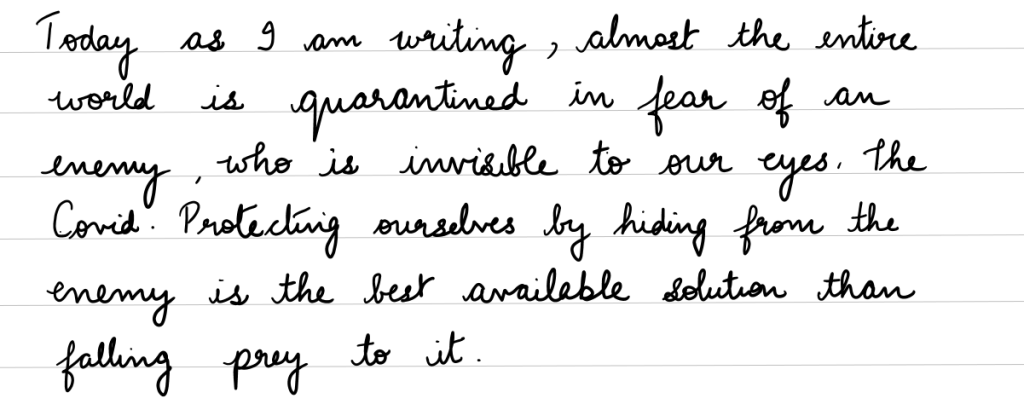 Today as I am writing, almost the entire
world is quarantined in fear of an
enemy, who is invisible to our eyes. The
Covid. Protecting ourselves by hiding from the
enemy is the best available solution than
falling prey to it.